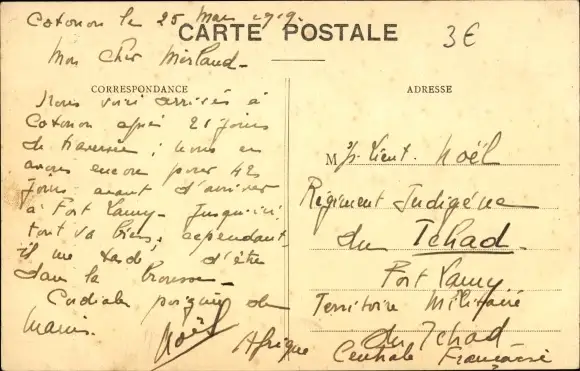 Cotonou le 25 Mai 1919.
CARTE POSTALE
3€
Mon Cher Mirland-
CORRESPONDANCE
Nous voici arrivés à
Cotonou après 21 jours
de traversée ; nous en
avons encore pour 45
jours avant d'arriver
à Fort Lamy. Jusqu'ici,
tout va bien, cependant,
il me tarde d'être
dans la brousse-
Cordiale poignée de
mains.
Noël
ADRESSE
M S/s-Lieut. Noël
Régiment Indigène
du Tchad.
Fort Lamy
Territoire Militaire
du Tchad
Afrique Centrale Française